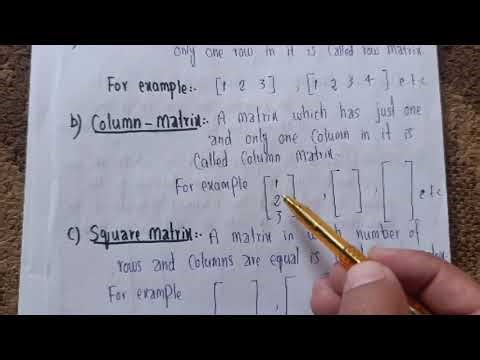 only one row in it is called row matrix
For example:- [1 2 3] , [1 2 3 4] e.t.c
b) Column-matrix:- A matrix which has just one
and only one column in it is
called column matrix.
For example [1 2 3] , [ ] , [ ] e.t.c
c) Square matrix:- A matrix in number of
rows and columns are equal is
For example [ ] , [